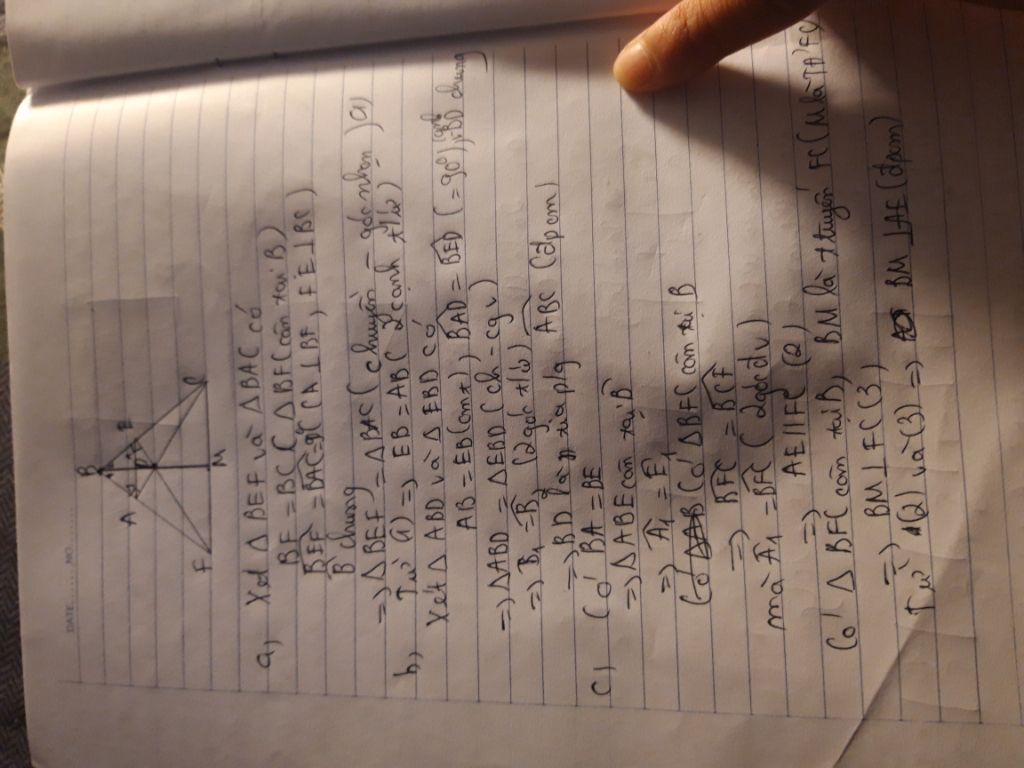 DATE........ NO........
B
A
E
1
D
F
M
C
a, Xét Δ BEF và Δ BAC có
BF = BC ( Δ BFC cân tại B )
BEF = BAC = 90° ( CA ⊥ BF, FE ⊥ BC )
B chung
=> Δ BEF = Δ BAC ( chuyền - góc nhọn ) (1)
b, Từ (1) => EB = ABC 2 cạnh t/ứ )
Xét Δ ABD và Δ EBD có
AB = EB (cmt) BAD = BED ( = 90° ), BD chung
=> Δ ABD = Δ EBD ( ch - cgv )
=> B1 = B2 (2 góc t/ứ )
=> BD là tia p/g ABC (đpcm)
c, Có BA = BE
=> Δ ABE cân tại B
=> A1 = E1
Có Δ BFC cân tại B
=> BFC = BCF
mà A1 = BFC ( 2 góc đv )
=> AE || FC (2)
Có Δ BFC cân tại B, BM là t tuyến FC ( M là TĐ FC)
=> BM ⊥ FC (3)
Từ (2) và (3) => BM ⊥ AE (đpcm)